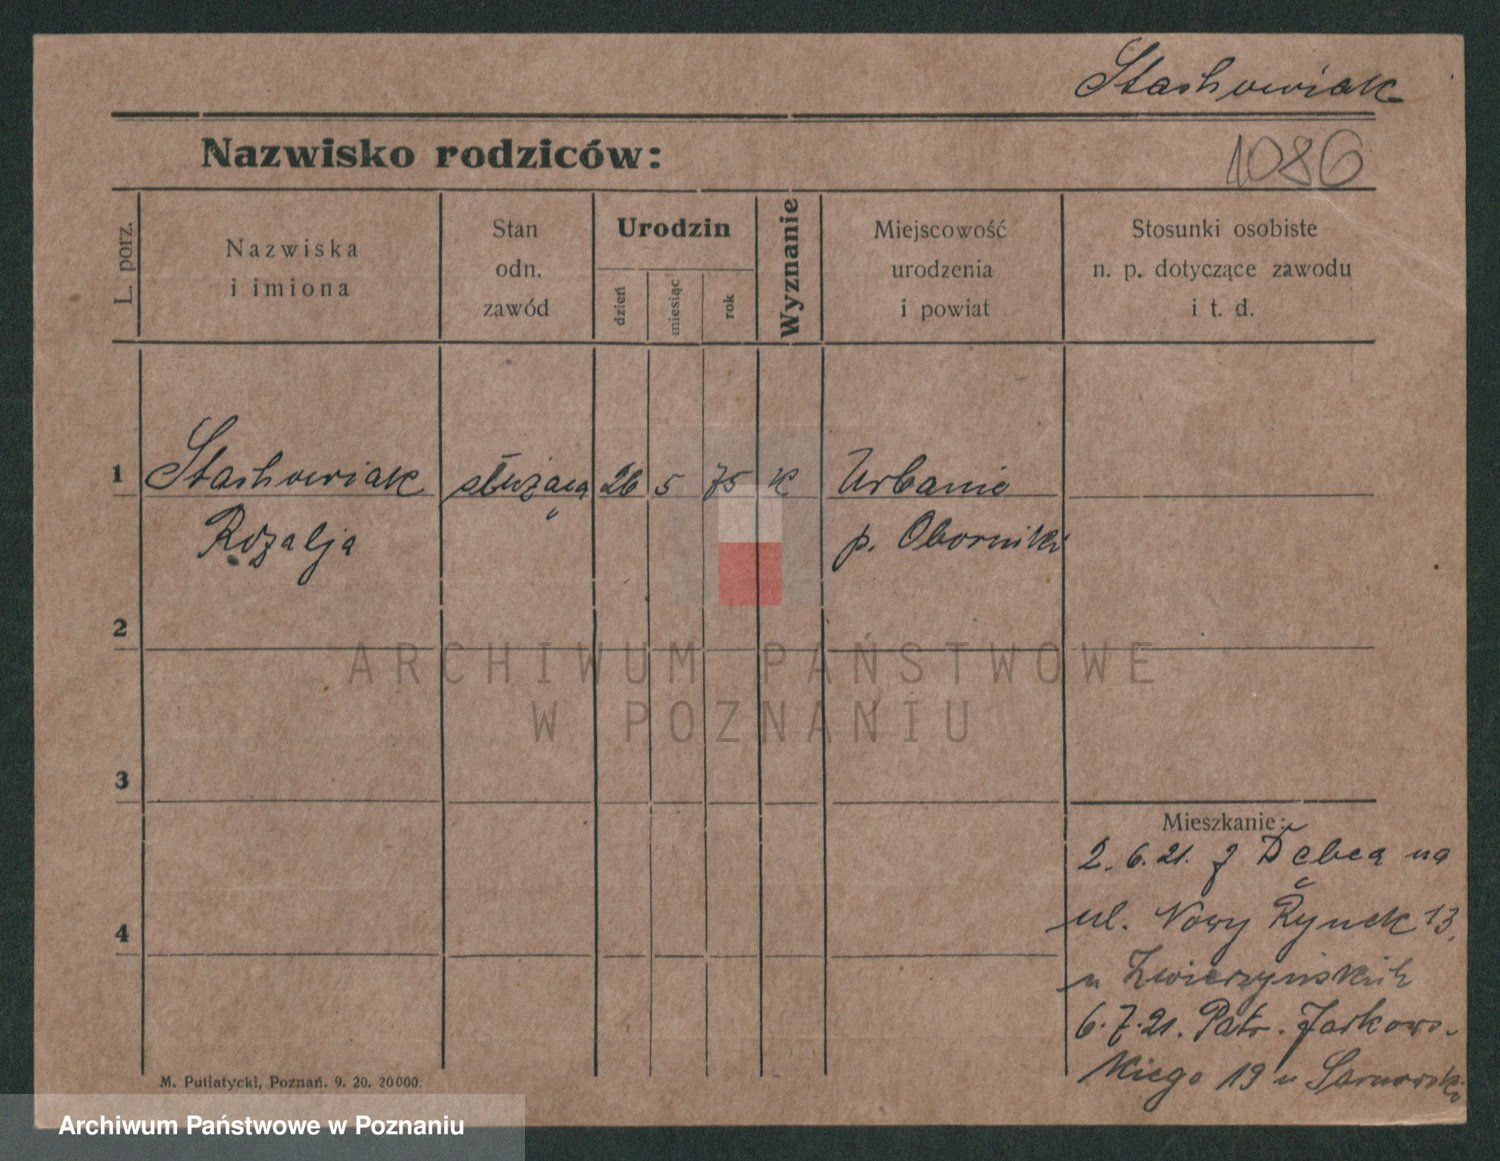 Stachowiak
Nazwisko rodziców:
1086
L. porz.
Nazwiska
i imiona
Stan
odn.
zawód
Urodzin
dzień
miesiąc
rok
Wyznanie
Miejscowość
urodzenia
i powiat
Stosunki osobiste
n. p. dotyczące zawodu
i t. d.
1 Stachowiak służąca 26 5 75 k Urbanie
Rozalja p. Oborniki
2
ARCHIWUM PAŃSTWOWE
W POZNANIU
3
Mieszkanie:
2.6.21. z Dębca na
4
ul. Nowy Rynek 13.
u Zwierzyńskich
6.7.21. Patr. Jackows-
kiego 19 u
M. Putiatycki, Poznań. 9. 20. 20000.
Archiwum Państwowe w Poznaniu